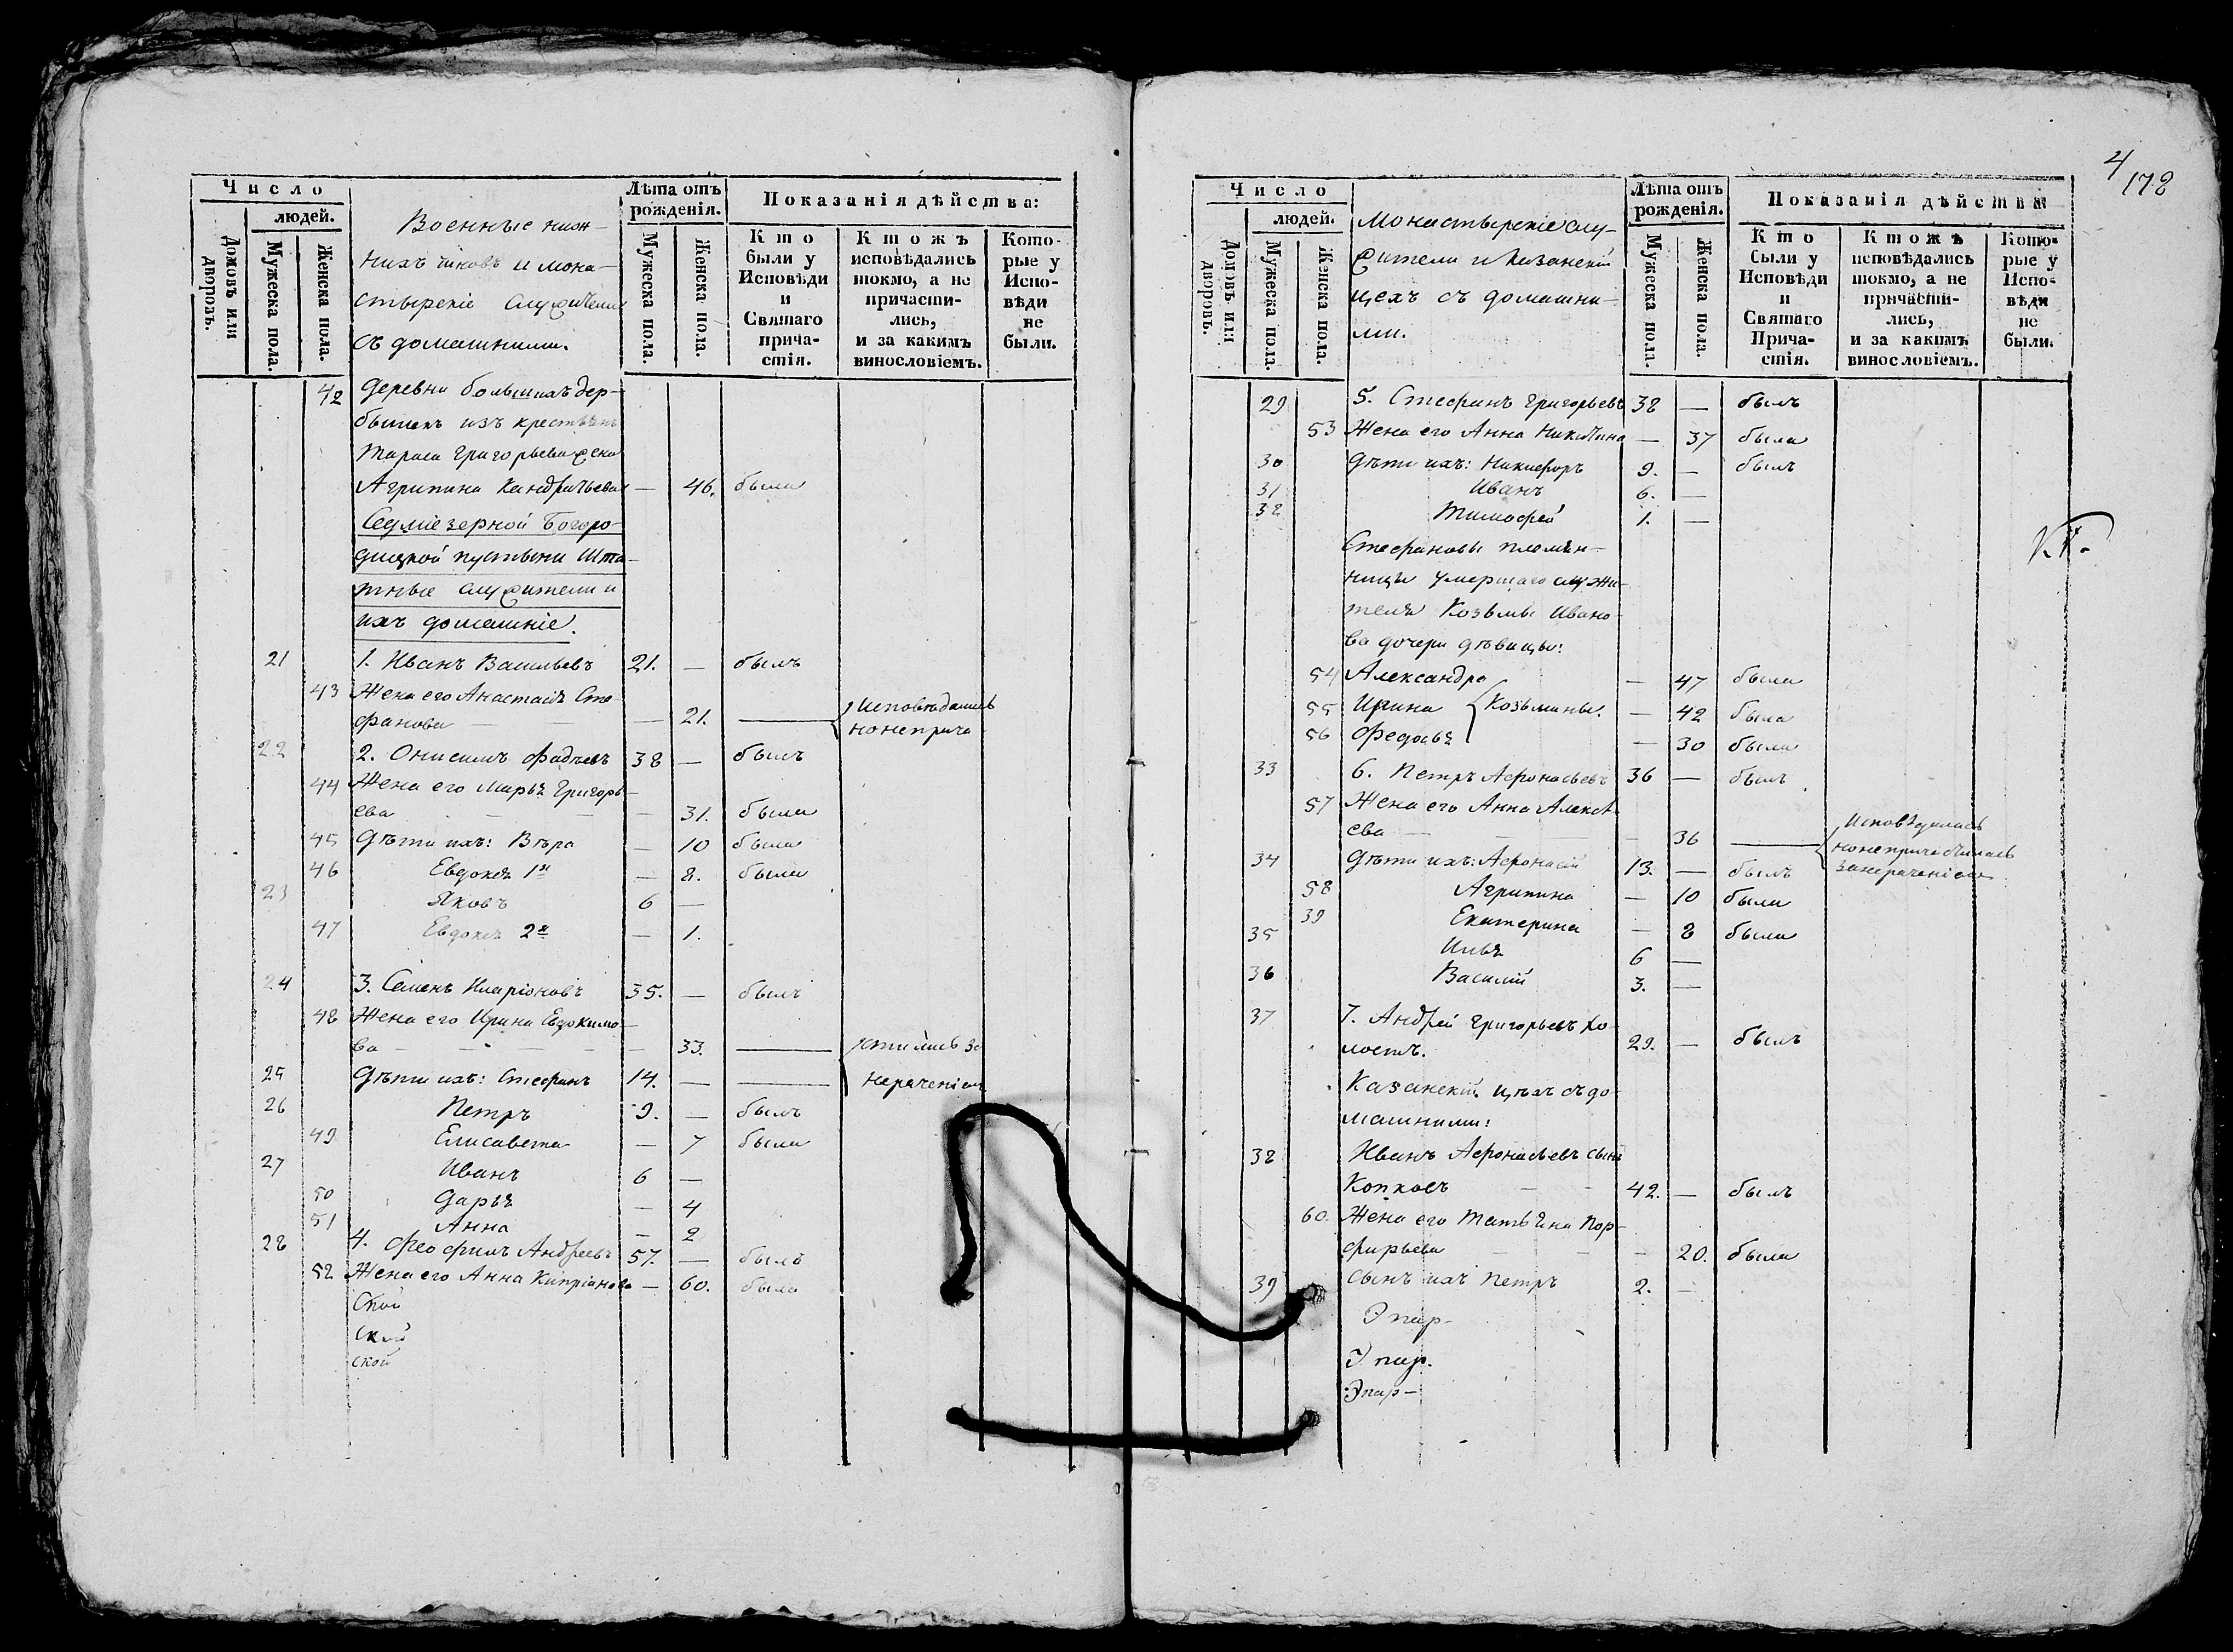 Число
людей.
Домовъ или дворовъ.
Мужеска пола.
Женска пола.
Военные ниж-
нихъ чиновъ и мона-
стырскіе служители
съ домашними.
Лѣта отъ рожденія.
Мужеска пола.
Женска пола.
Показанія дѣйства:
Кто были у Исповѣди и Святаго прича-стія.
Ктожъ исповѣдались токмо, а не причасти-лись, и за какимъ винословіемъ.
Кото-рые у Испо-вѣди не были.
42 деревни большихъ дер-
бышекъ изъ крестьянъ
Тараса Григорьева жена
Агрипина Кандратьева — 46. была
Седміезерной Богоро-
дицкой пустыни шта-
тные служители и
ихъ домашніе.
21 1. Иванъ Васильевъ 21. — былъ
43 Жена его Анастасія Сте-
фанова — 21. — исповѣдалась
но неприча
22 2. Онисимъ Фадѣевъ 38 — былъ
44 Жена его Марья Григорь-
ева — 31. была
45 Дѣти ихъ: Вѣра — 10 была
46 Евдокея 1я — 8. была
23 Яковъ 6 —
47 Евдокея 2я — 1.
24 3. Семенъ Иларіоновъ 35. — былъ
48 Жена его Ирина Евдокимо-
ва — 33. — стились за
25 Дѣти ихъ: Стефанъ 14. — — нераченіем
26 Петръ 9. — былъ
49 Елисавета — 7 была
27 Иванъ 6 —
50 Дарья — 4
51 Анна — 2
28 4. Феофилъ Андреевъ 57. — былъ
52 Жена его Анна Кипріанова — 60. была
Ской
ской
ской
4/178
Число
людей.
Домовъ или дворовъ.
Мужеска пола.
Женска пола.
Монастырскіе слу-
жители и Казанскій
цехъ съ домашни-
ми.
Лѣта отъ рожденія.
Мужеска пола.
Женска пола.
Показанія дѣйства
Кто были у Исповѣди и Святаго Прича-стія.
Ктожъ исповѣдались токмо, а не причасти-лись, и за какимъ винословіемъ.
Кото-рые у Испо-вѣди не были.
29 5. Стефанъ Григорьевъ 38 — былъ
53 Жена его Анна Никитина — 37 была
30 Дѣти ихъ: Никифоръ 9. — былъ
31 Иванъ 6. —
32 Тимофей 1. —
Стефановы племян-
ницы умершаго служи-
теля Козьмы Ивано-
ва дочери дѣвицы:
54 Александра — 47 была
55 Ирина Козьмины. — 42 была
56 Федосья — 30 была
33 6. Петръ Афонасьевъ 36 — былъ
57 Жена его Анна Алексѣ-
ева — 36 — исповѣдалась
но непричастилась
34 Дѣти ихъ: Афонасій 13. — былъ занераченіем
58 Агрипина — 10 была
39 Екатерина — 8 была
35 Илья 6 —
36 Василій 3. —
37 7. Андрей Григорьевъ хо-
лостъ. 29. — былъ
Казанскій цѣхъ съ до-
машними:
38 Иванъ Афонасьевъ сынъ
Копковъ 42. — былъ
60. Жена его Татьяна Пор-
фирьева — 20. была
39 сынъ ихъ Петръ 2. —
Эпар-
Эпар.
Эпар-